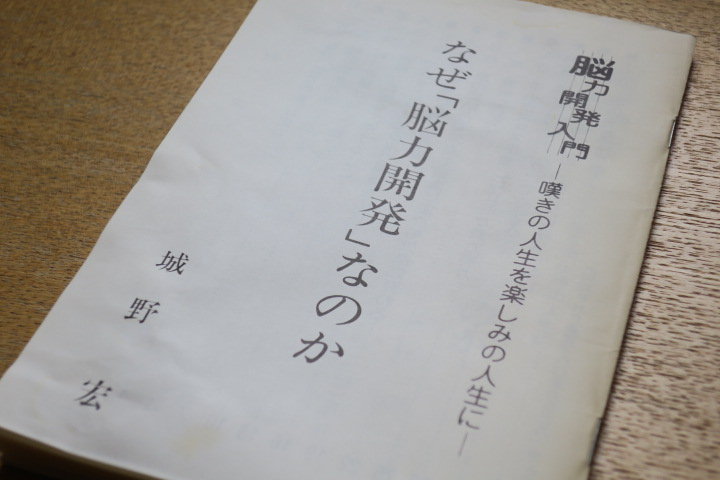 脳力開発入門
―嘆きの人生を楽しみの人生に―
なぜ「脳力開発」なのか
城野宏